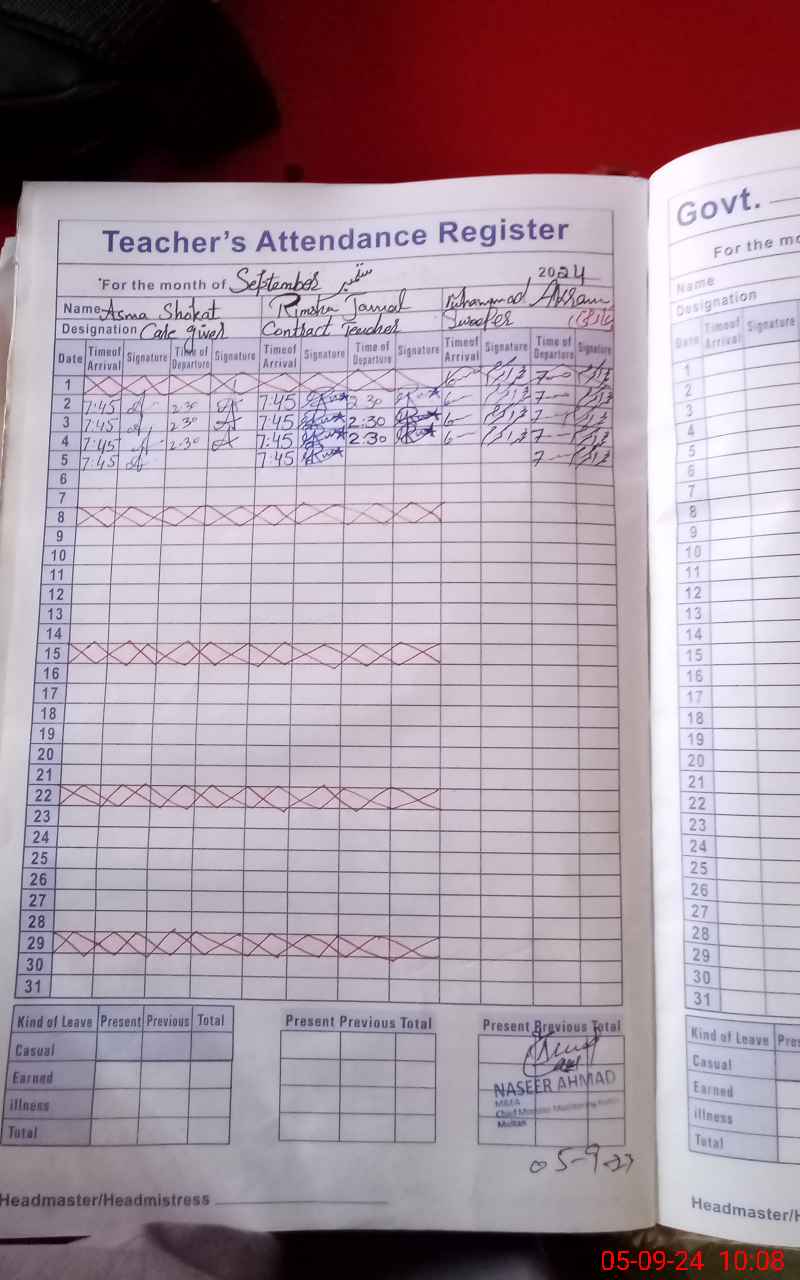 Teacher's Attendance Register
For the month of September ستمبر 2024
Name Asma Shokat Rimsha Jamal Muhammad Akram
Designation Care giver Contract Teacher Sweeper
Date Time of Arrival Signature Time of Departure Signature Time of Arrival Signature Time of Departure Signature Time of Arrival Signature Time of Departure Signature
1 6— 7—0
2 7:45 2:30 7:45 2:30 6— 7—
3 7:45 2:30 7:45 2:30 6— 7—
4 7:45 2:30 7:45 2:30 6— 7—
5 7:45 7:45 7—
6
7
8
9
10
11
12
13
14
15
16
17
18
19
20
21
22
23
24
25
26
27
28
29
30
31
Kind of Leave Present Previous Total
Casual
Earned
illness
Total
Present Previous Total
Present Previous Total
NASEER AHMAD
M&EA
Multan
05-9-
Headmaster/Headmistress
Govt.
For the mo
Name
Designation
Date Time of Arrival Signature
1
2
3
4
5
6
7
8
9
10
11
12
13
14
15
16
17
18
19
20
21
22
23
24
25
26
27
28
29
30
31
Kind of Leave Pres
Casual
Earned
illness
Total
Headmaster/H
05-09-24 10:08